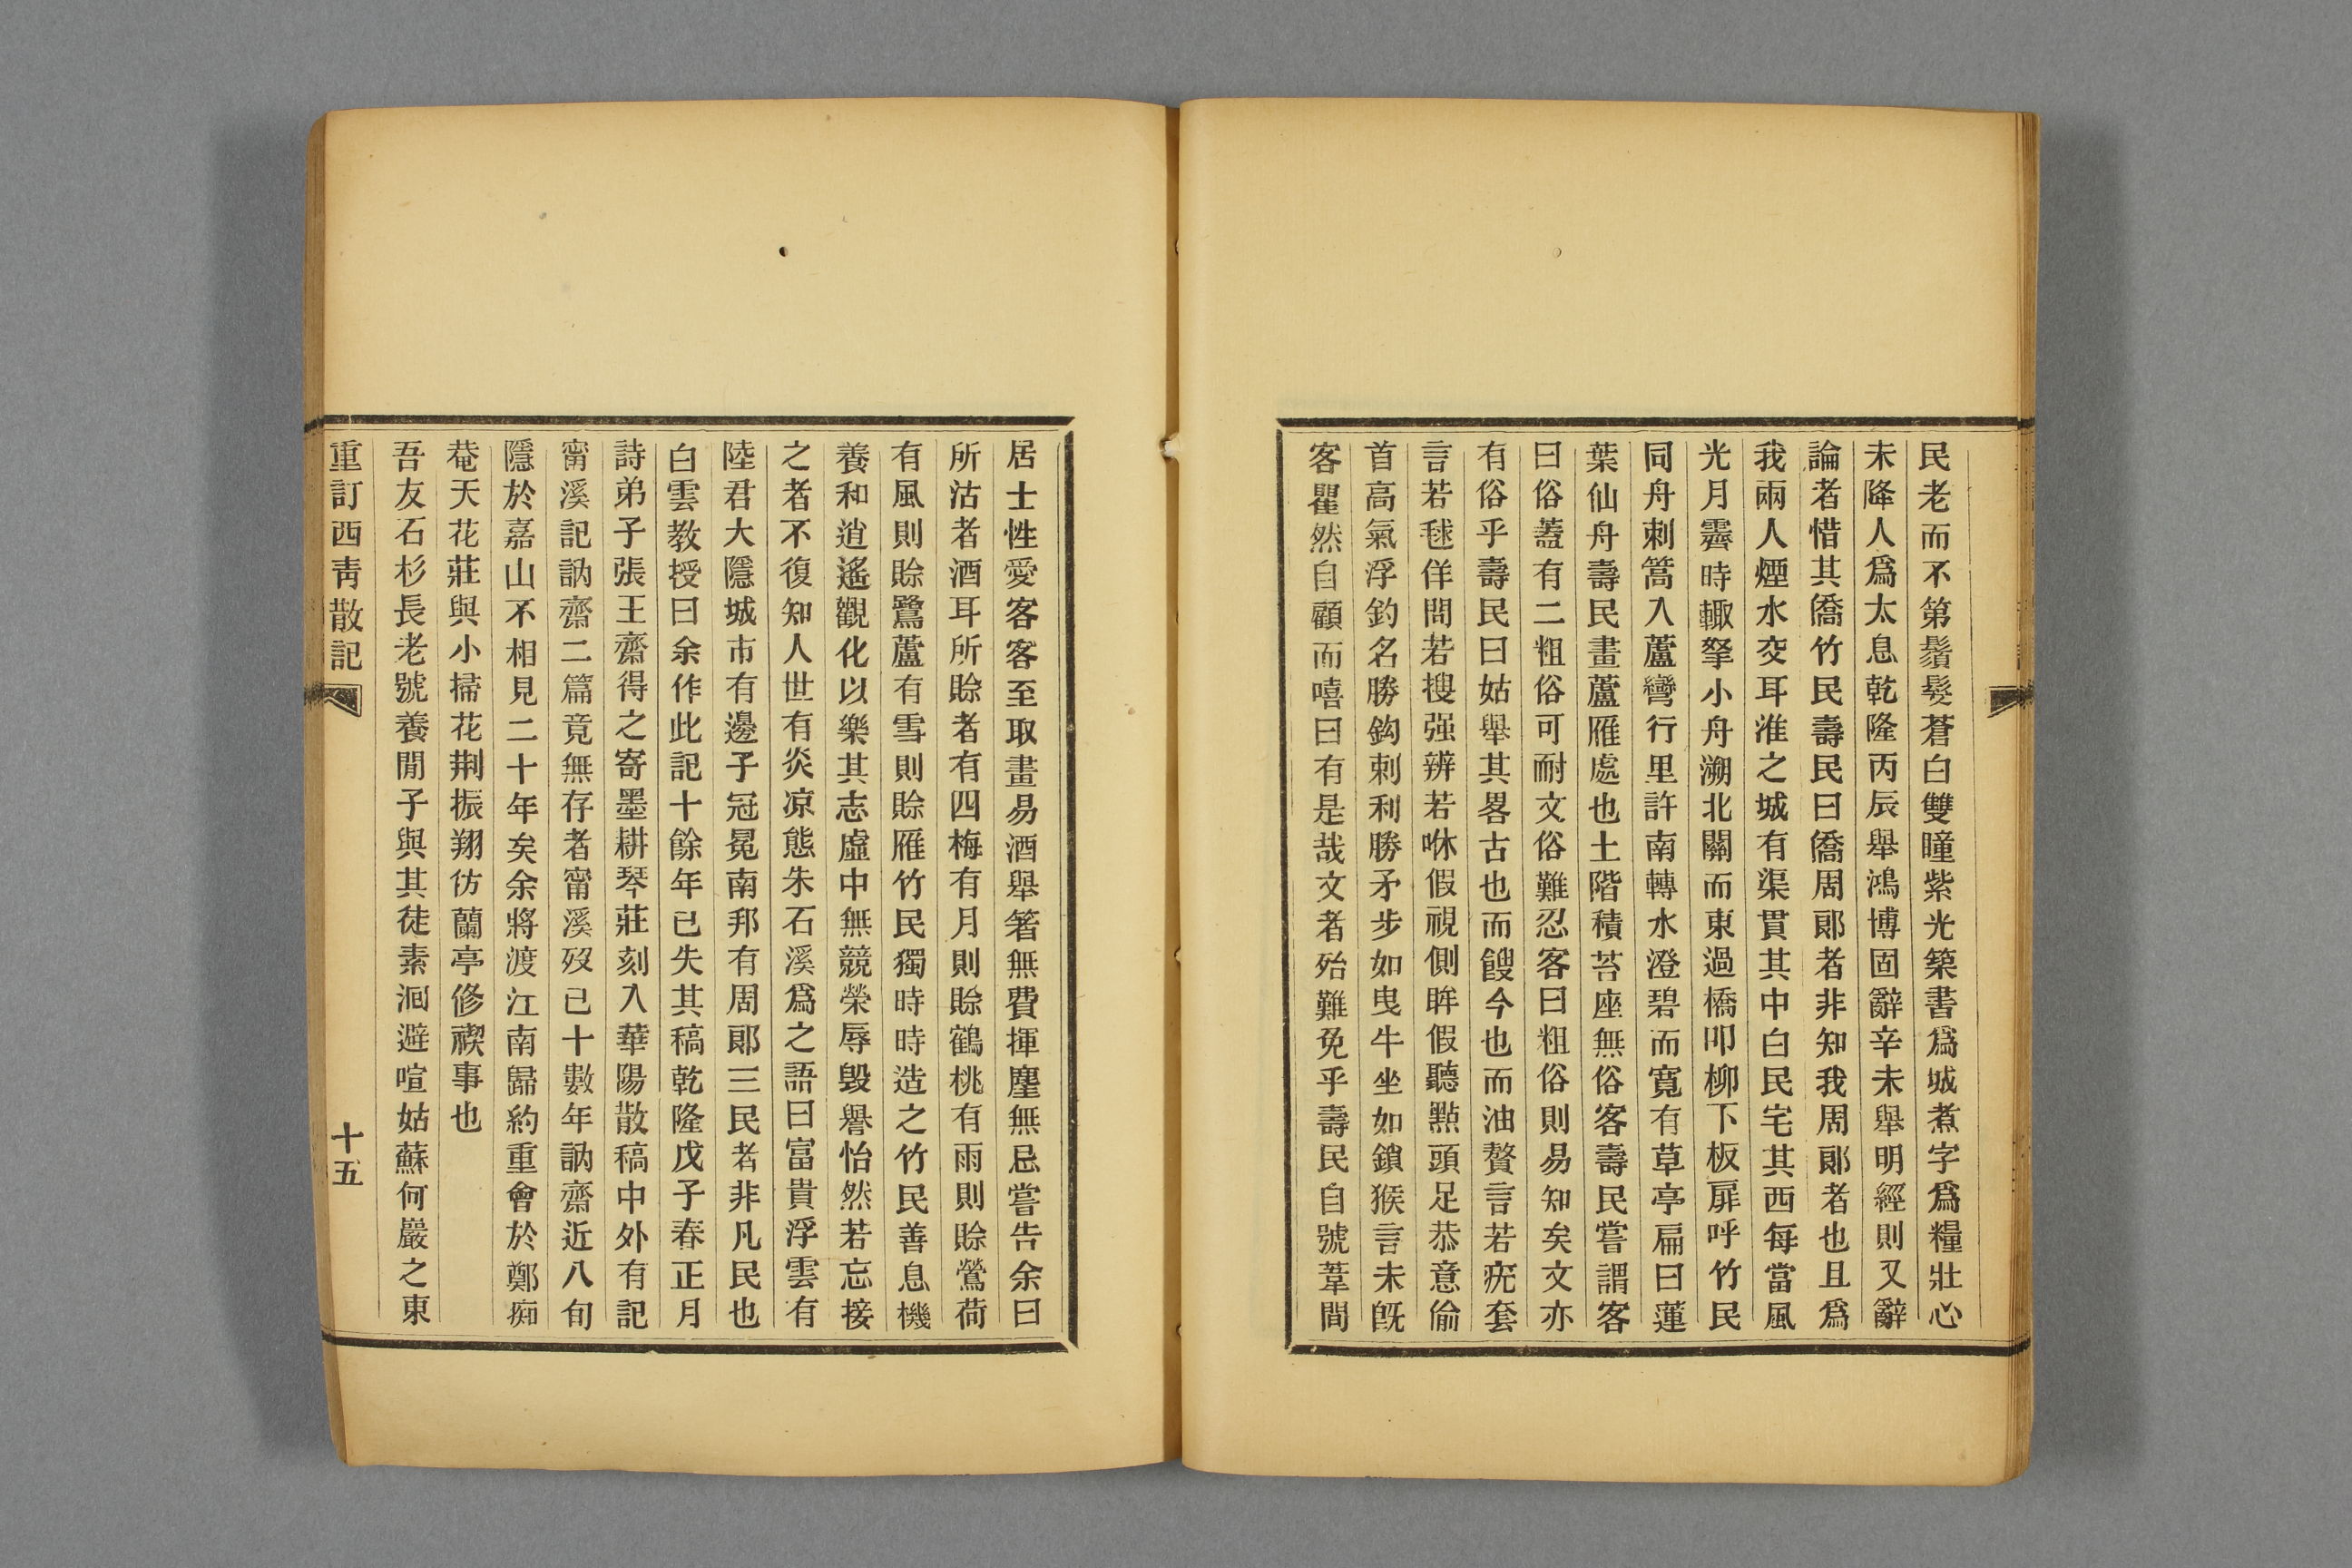 民老而不第鬚髮蒼白雙瞳紫光築書爲城煮字爲糧壯心
未降人爲太息乾隆丙辰舉鴻博固辭辛未舉明經則又辭
論者惜其僑竹民壽民曰僑周郞者非知我周郞者也且爲
我兩人煙水交耳淮之城有渠貫其中白民宅其西每當風
光月霽時輙拏小舟溯北關而東過橋叩柳下板扉呼竹民
同舟刺篙入蘆彎行里許南轉水澄碧而寬有草亭扁曰蓮
葉仙舟壽民畫蘆雁處也土階積苔座無俗客壽民嘗謂客
曰俗蓋有二粗俗可耐文俗難忍客曰粗俗則易知矣文亦
有俗乎壽民曰姑舉其畧古也而餿今也而油贅言若疣套
言若毬佯問若搜强辨若咻假視側眸假聽㸃頭足恭意偷
首高氣浮釣名勝鈎刺利勝矛步如曳牛坐如鎖猴言未旣
客瞿然自顧而嘻曰有是哉文者殆難免乎壽民自號葦間
居士性愛客客至取畫易酒舉箸無費揮麈無忌嘗告余曰
所沽者酒耳所賒者有四梅有月則賒鶴桃有雨則賒鶯荷
有風則賒鷺蘆有雪則賒雁竹民獨時時造之竹民善息機
養和逍遙觀化以樂其志虛中無競榮辱毁譽怡然若忘接
之者不復知人世有炎凉態朱石溪爲之語曰富貴浮雲有
陸君大隱城市有邊子冠冕南邦有周郞三民者非凡民也
白雲教授曰余作此記十餘年已失其稿乾隆戊子春正月
詩弟子張王齋得之寄墨耕琴莊刻入華陽散稿中外有記
甯溪記訥齋二篇竟無存者甯溪歿已十數年訥齋近八旬
隱於嘉山不相見二十年矣余將渡江南歸約重會於鄭痴
菴天花莊與小掃花荆振翔仿蘭亭修禊事也
吾友石杉長老號養閒子與其徒素洄避喧姑蘇何巖之東
重訂西青散記
十五